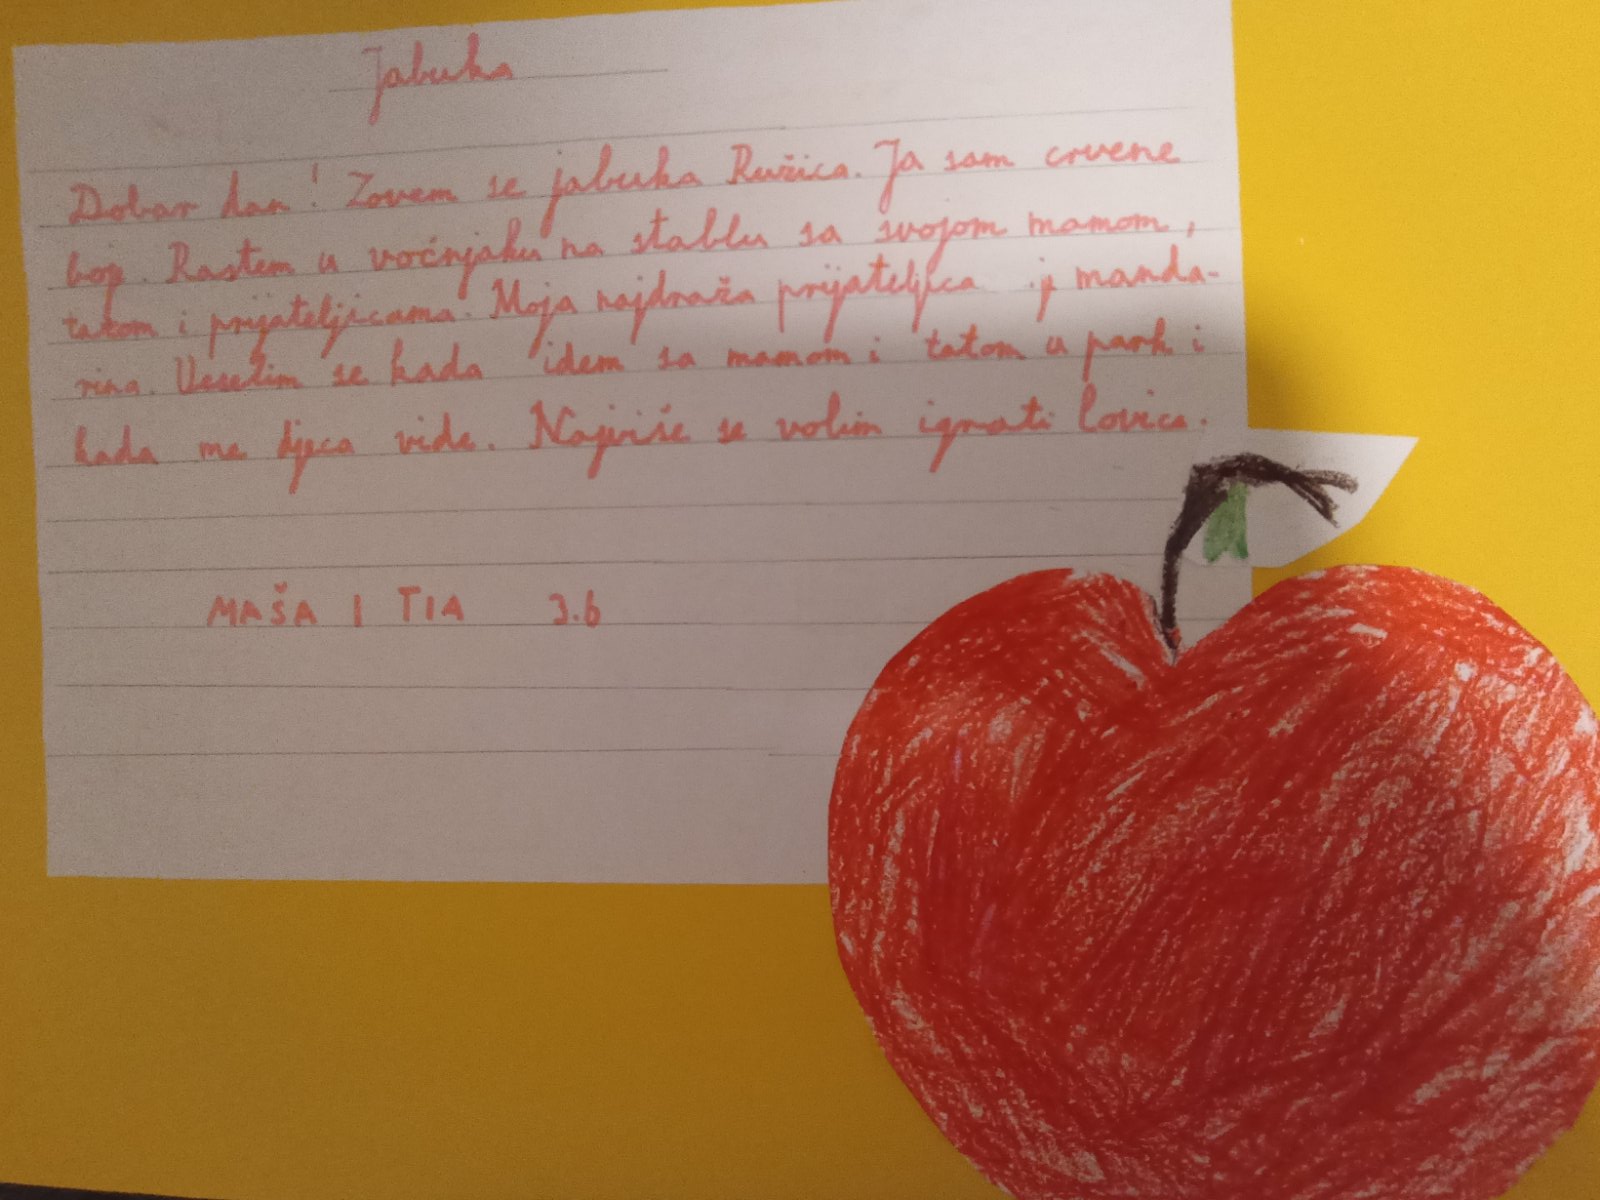 Jabuka
Dobar dan! Zovem se jabuka Ružica. Ja sam crvene
boje. Rastem u voćnjaku na stablu sa svojom mamom,
tatom i prijateljicama. Moja najdraža prijateljica je manda-
rina. Veselim se kada idem sa mamom i tatom u park i
kada me djeca vide. Najviše se volim igrati lovica.
MAŠA I TIA 3.b